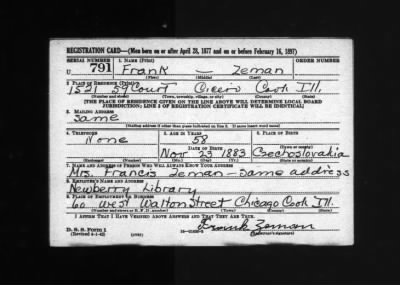 REGISTRATION CARD—(Men born on or after April 28, 1877 and on or before February 16, 1897)
SERIAL NUMBER 1. NAME (Print) ORDER NUMBER
U 791 Frank — Zeman
(First) (Middle) (Last)
2. PLACE OF RESIDENCE (Print)
1521 59 Court Cicero Cook Ill.
(Number and street) (Town, township, village, or city) (County) (State)
[THE PLACE OF RESIDENCE GIVEN ON THE LINE ABOVE WILL DETERMINE LOCAL BOARD
JURISDICTION; LINE 2 OF REGISTRATION CERTIFICATE WILL BE IDENTICAL]
3. MAILING ADDRESS
Same
[Mailing address if other than place indicated on line 2. If same insert word same]
4. TELEPHONE 5. AGE IN YEARS 6. PLACE OF BIRTH
None 58
DATE OF BIRTH (Town or county)
Nov 23 1883 Czechoslovakia
(Exchange) (Number) (Mo.) (Day) (Yr.) (State or country)
7. NAME AND ADDRESS OF PERSON WHO WILL ALWAYS KNOW YOUR ADDRESS
Mrs. Francis Zeman - Same address
8. EMPLOYER'S NAME AND ADDRESS
Newberry Library
9. PLACE OF EMPLOYMENT OR BUSINESS
60 West Walton Street Chicago Cook Ill.
(Number and street or R. F. D. number) (Town) (County) (State)
I AFFIRM THAT I HAVE VERIFIED ABOVE ANSWERS AND THAT THEY ARE TRUE.
Frank Zeman
D. S. S. Form 1
(Revised 4-1-42) (over) (Registrant's signature)